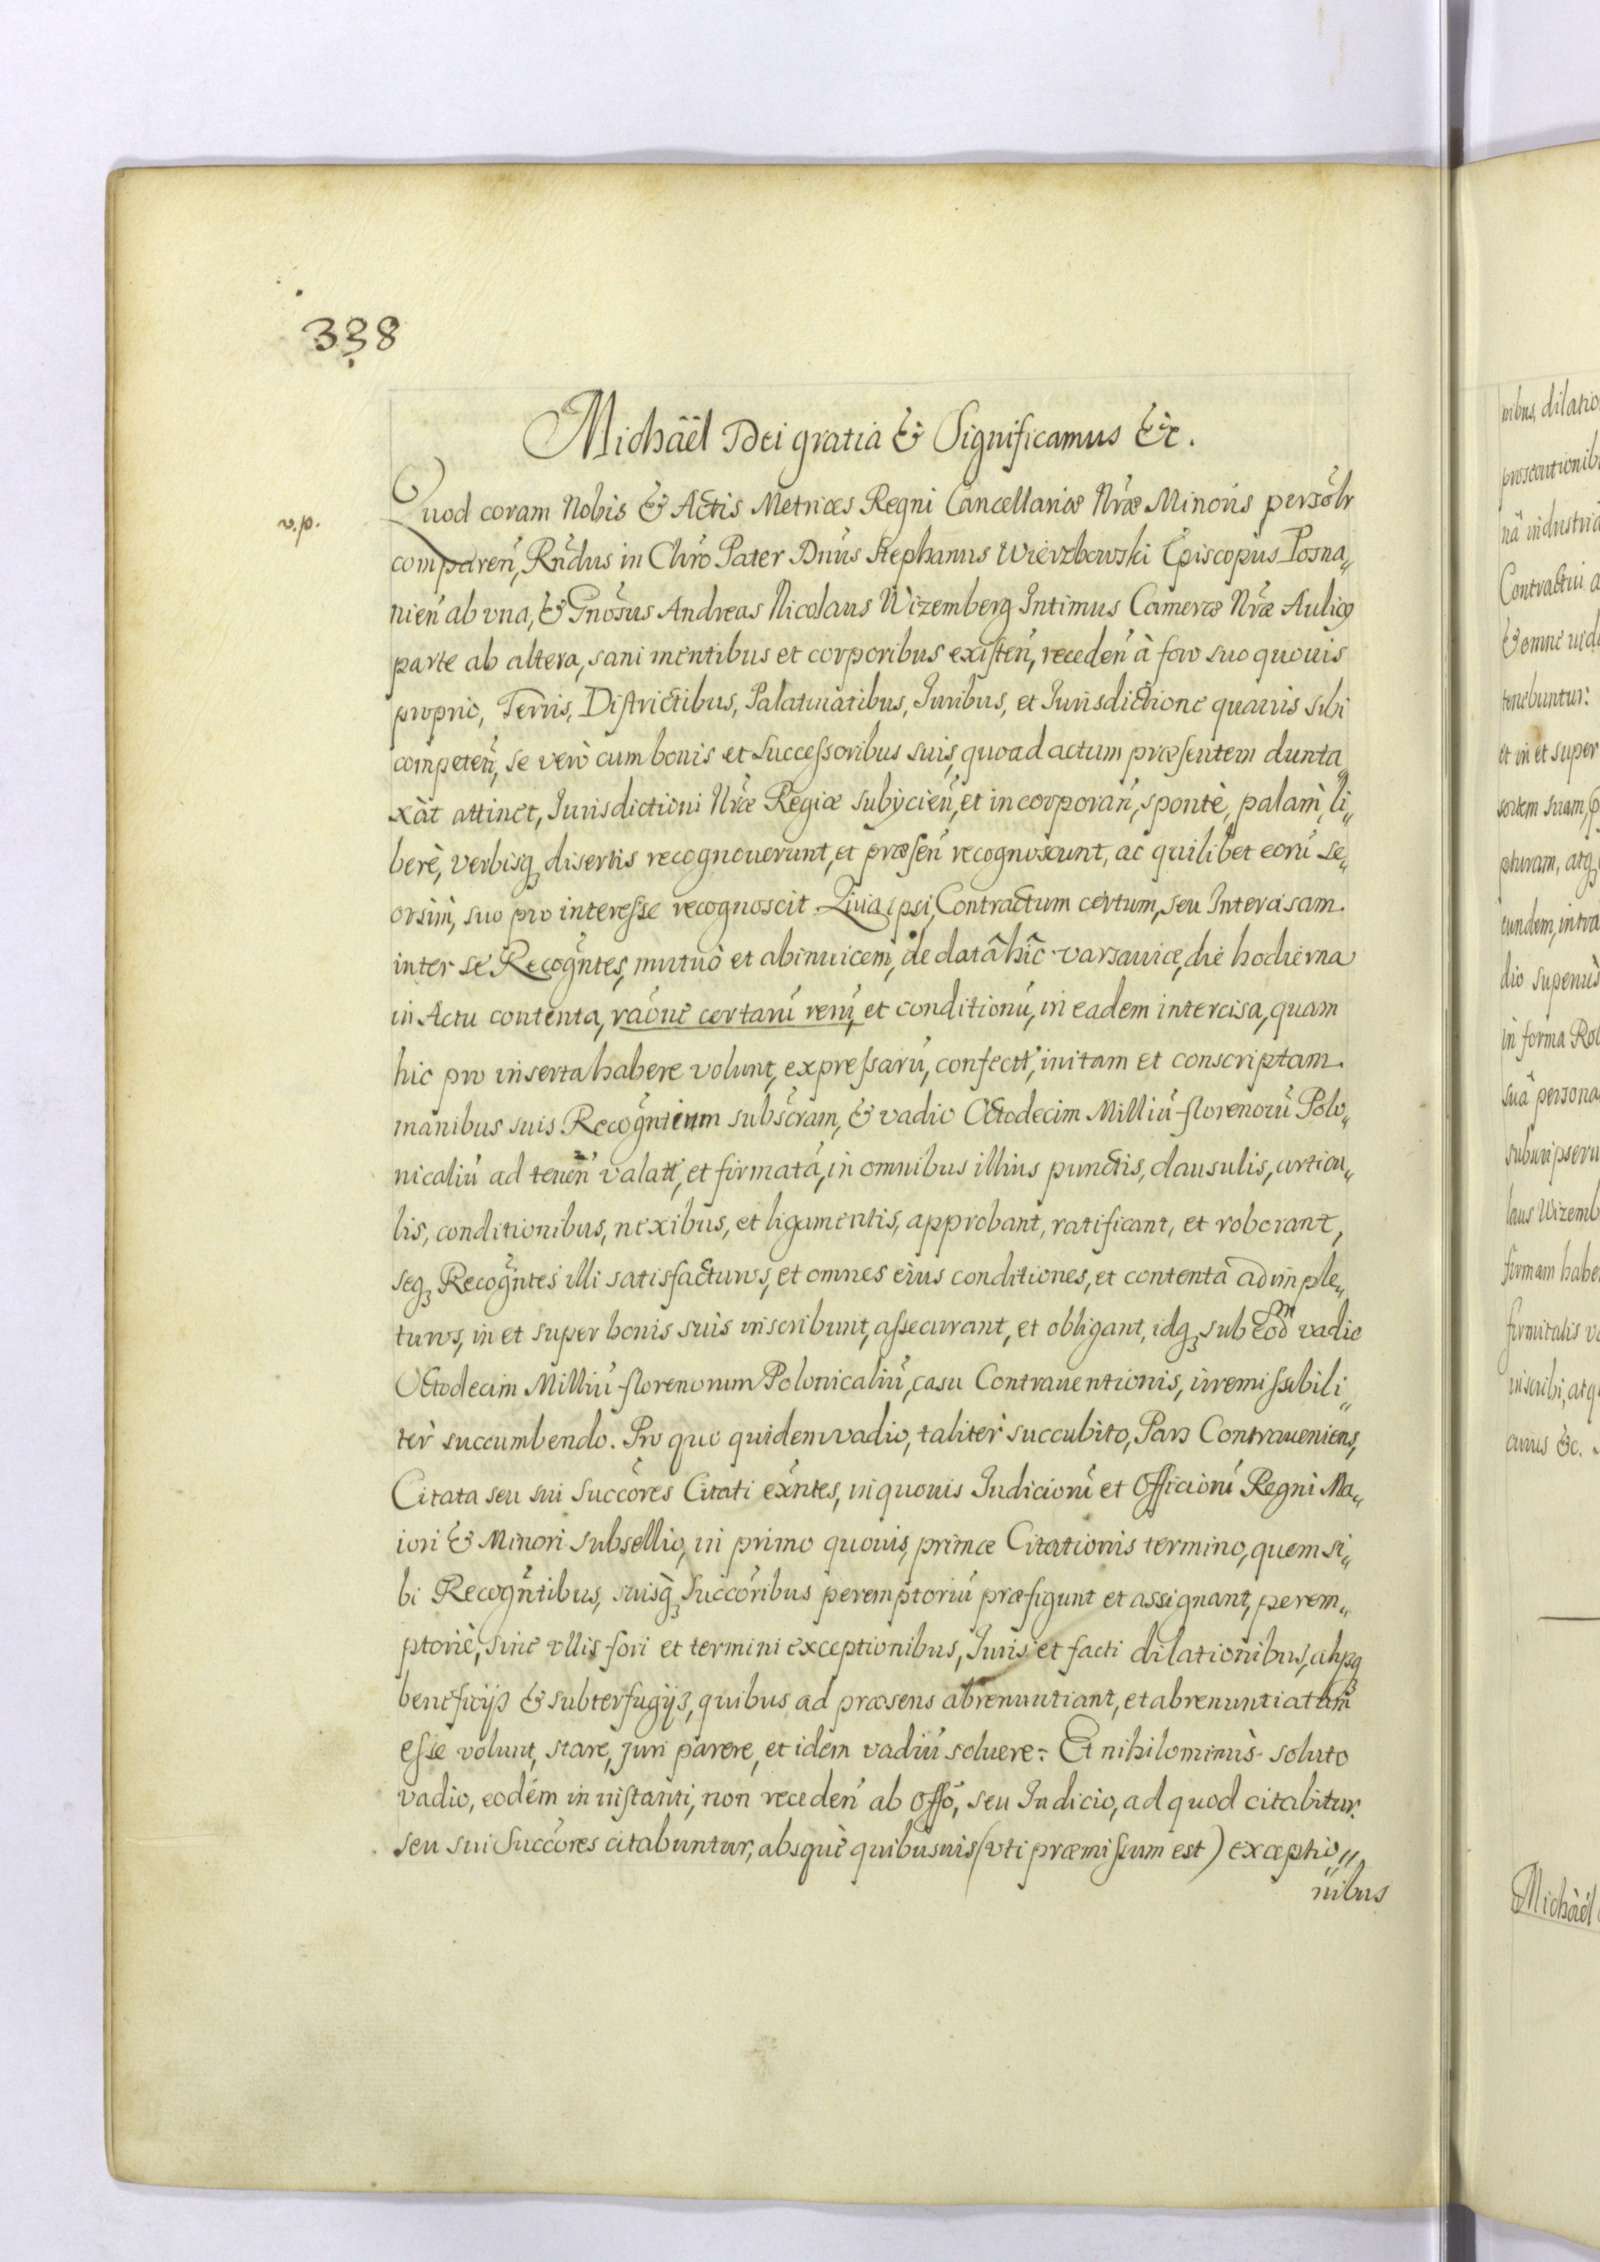 338
Michäël Dei gratia & Significamus &c.
v.p.
Quod coram Nobis & Actis Metrices Regni Cancellariæ Nræ Minoris persolr
comparen, Rndus in Chro Pater Dnus Stephanus Wierzbowski Episcopus Posna„
nien ab vna, & Gnosus Andreas Nicolaus Wizemberg Intimus Cameræ Nræ Aulicq
parte ab altera, sani mentibus et corporibus existen, receden à foro suo quouis
proprio, Terris, Districtibus, Palatinatibus, Iuribus, et Iurisdictione quauis sibi
competen, se verò cum bonis et successoribus suis, quoad actum præsentem dunta„
xàt attinet, Iurisdictioni Nræ Regiæ subijcien, et incorporan, spontè, palàm, li„
berè, verbisq disertis recognouerunt, et præsen recognoscunt, ac quilibet eoru se„
orsim, suo pro interesse recognoscit. Quia ipsi, Contractum certum, seu Intercisam
inter se Recogntes, mutuò et abinuicem, de datâ hîc Varsauiæ, die hodierna
in Actu contenta, raone certaru reru, et conditionu, in eadem intercisa, quam
hic pro inserta habere volunt, expressaru, confectt, initam et conscriptam
manibus suis Recogntium subscram, & vadio Octodecim Milliu florenoru Polo„
nicaliu ad tenen valatt, et firmata, in omnibus illius punctis, clausulis, articu„
lis, conditionibus, nexibus, et ligamentis, approbant, ratificant, et roborant,
seq Recogntes illi satisfacturos, et omnes eius conditiones, et contenta adimple„
turos, in et super bonis suis inscribunt, assecurant, et obligant, idq sub eodm vadio
Octodecim Milliu florenorum Polonicaliu, casu Contrauentionis, irremissibili„
tèr succumbendo. Pro quo quidem vadio, talitèr succubito, Pars Contraueniens,
Citata seu sui Succores Citati exntes, in quouis Iudicioru et Officioru Regni Ma„
iori & Minori subsellio, in primo quouis, primæ Citationis termino, quem si„
bi Recogntibus, suisq Succoribus peremptoriu præfigunt et assignant, perem„
ptoriè, sine vllis fori et termini exceptionibus, Iuris et facti dilationibus, alysq
beneficijs & subterfugijs, quibus ad præsens abrenuntiant, et abrenuntiatum
esse volunt, stare, juri parere, et idem vadiu soluere: Et nihilominùs soluto
vadio, eodem in instanti, non receden ab Offo, seu Iudicio, ad quod citabitur
seu sui Succores citabuntur, absque quibusuis (vti præmissum est) exceptio„
nibus